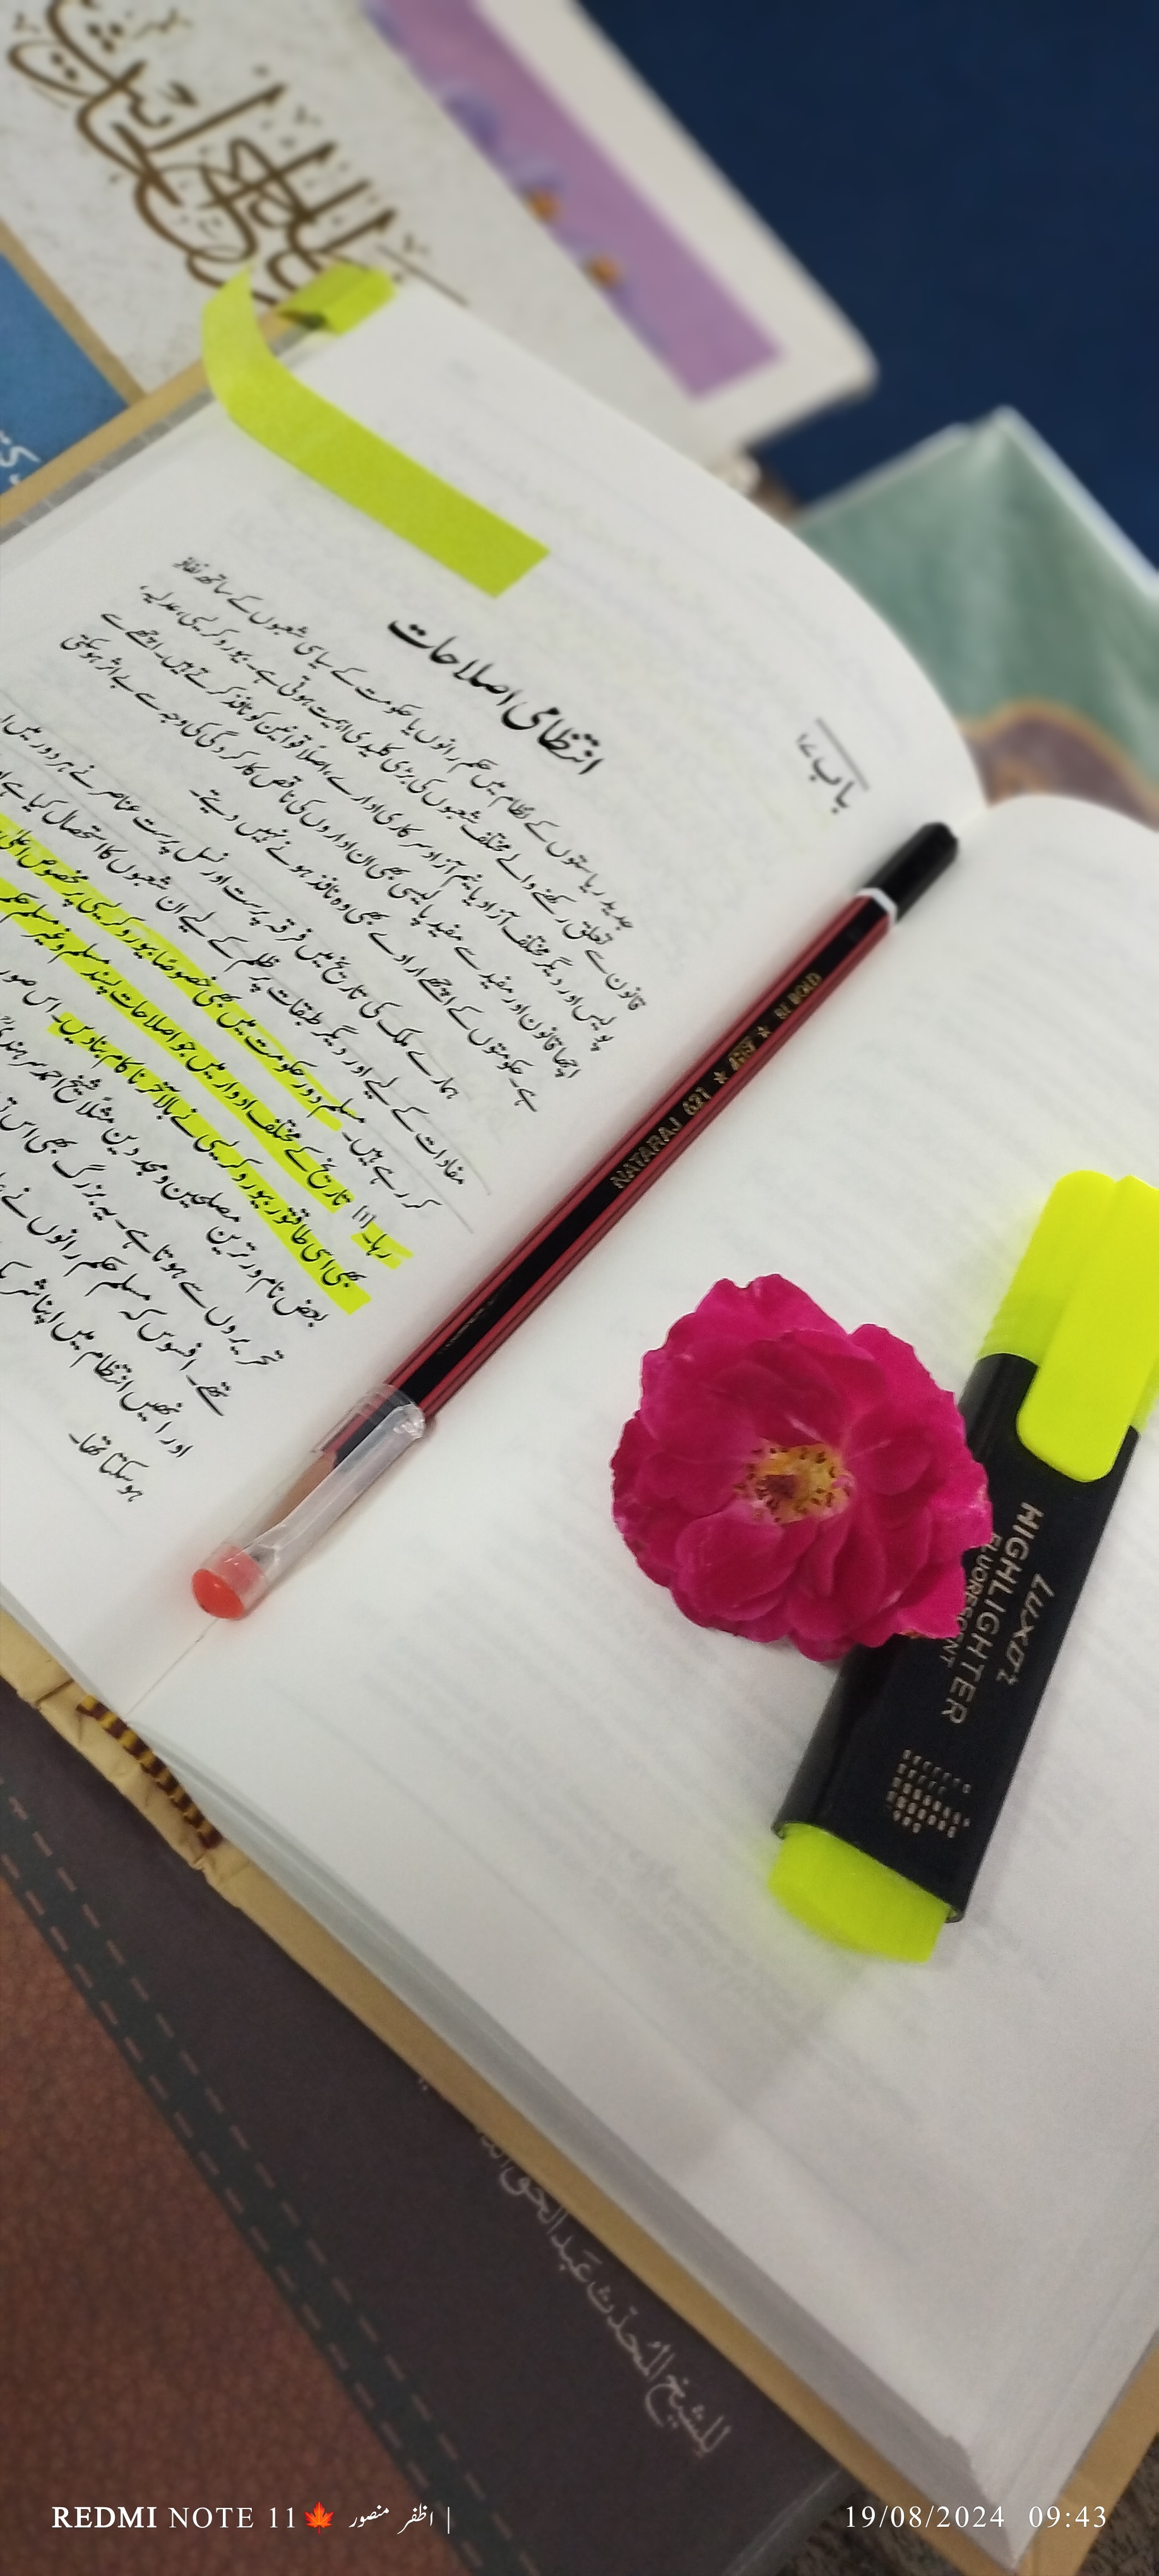 باب ۱۷
انتظامی اصلاحات
جدید ریاستوں کے نظام میں حکم رانوں یا حکومت کے سیاسی شعبوں کے ساتھ نفاذ
قانون سے تعلق رکھنے والے مختلف شعبوں کی بڑی کلیدی اہمیت ہوتی ہے۔ بیوروکریسی، عدلیہ،
پولیس اور دیگر مختلف آزاد یا نیم آزاد سرکاری ادارے، اصلاً قوانین کو نافذ کرتے ہیں۔ اچھے سے
اچھا قانون اور مفید سے مفید پالیسی بھی ان اداروں کی ناقص کارکردگی کی وجہ سے بے اثر ہوسکتی
ہے۔ حکومتوں کے اچھے ارادے بھی وہ نافذ ہونے نہیں دیتے۔
ہمارے ملک کی تاریخ میں فرقہ پرست اور نسل پرست عناصر نے ہر دور میں
مفادات کے لیے اور دیگر طبقات پر ظلم کے لیے ان شعبوں کا استحصال کیا ہے
کر رہے ہیں۔ مسلم دور حکومت میں بھی خصوصاً بیوروکریسی پر مخصوص
رہا۔[1] تاریخ کے مختلف ادوار میں جو اصلاحات پسند مسلم و غیر مسلم
بھی اسی طاقتور بیوروکریسی نے بالآخر ناکام بنا دیں۔ اس
بعض نام ور ترین مصلحین و مجدد دین مثلاً شیخ احمد سرہندی
تحریروں سے ہوتا ہے۔ یہ بزرگ بھی اس
تھے۔ افسوس کہ مسلم حکم رانوں نے
اور انھیں انتظام میں اپنا شریک
ہوسکتا تھا۔
NATARAJ 621 ★ ★ BE BOLD
Luxor
HIGHLIGHTER
FLUORESCENT
للشيخ المُحدّث عَبد الحق
REDMI NOTE 11🍁 اظفر منصور |
19/08/2024 09:43